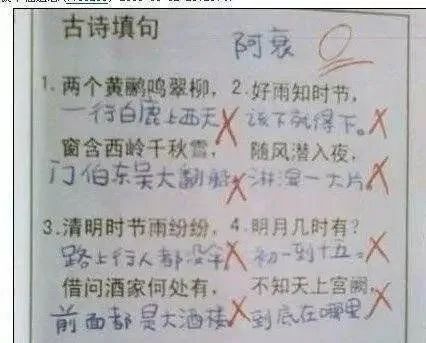 古诗填句
阿衰 0
1. 两个黄鹂鸣翠柳, 2. 好雨知时节,
一行白鹿上西天 该下就得下。
窗含西岭千秋雪, 随风潜入夜,
门伯东吴大翻船 淋湿一大片
3. 清明时节雨纷纷, 4. 明月几时有?
路上行人都没伞 初一到十五。
借问酒家何处有, 不知天上宫阙,
前面都是大酒楼 到底在哪里